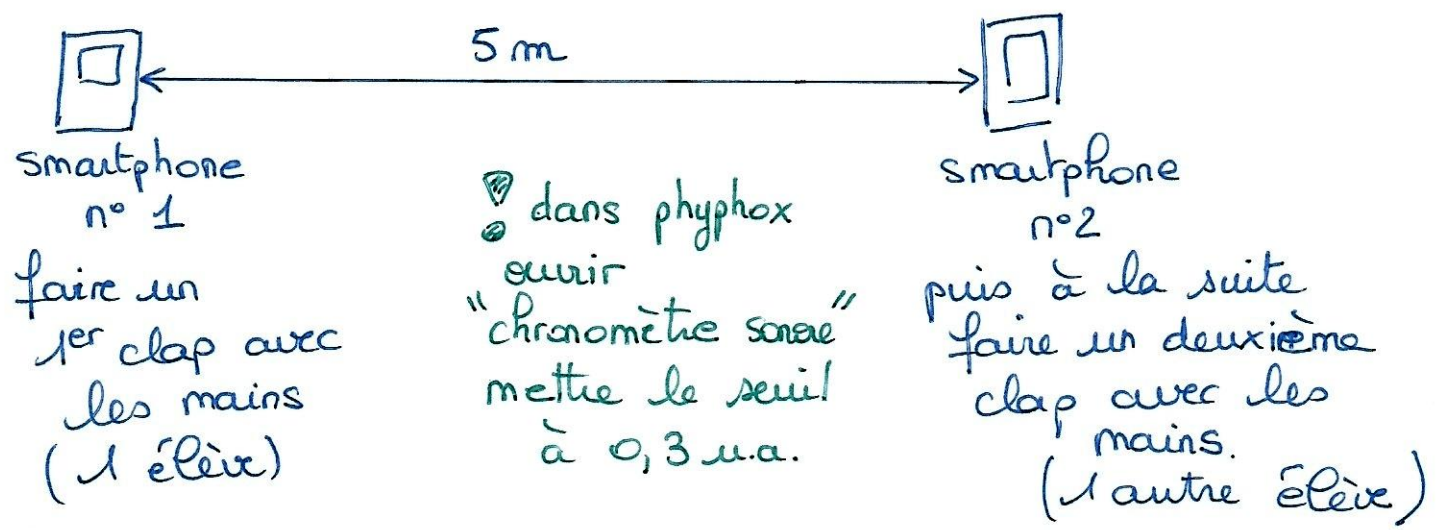 5 m
smartphone
n° 1
faire un
1er clap avec
les mains
(1 élève)
! dans phyphox
ouvrir
"chronomètre sonore"
mettre le seuil
à 0,3 u.a.
smartphone
n°2
puis à la suite
faire un deuxième
clap avec les
mains.
(1 autre élève)